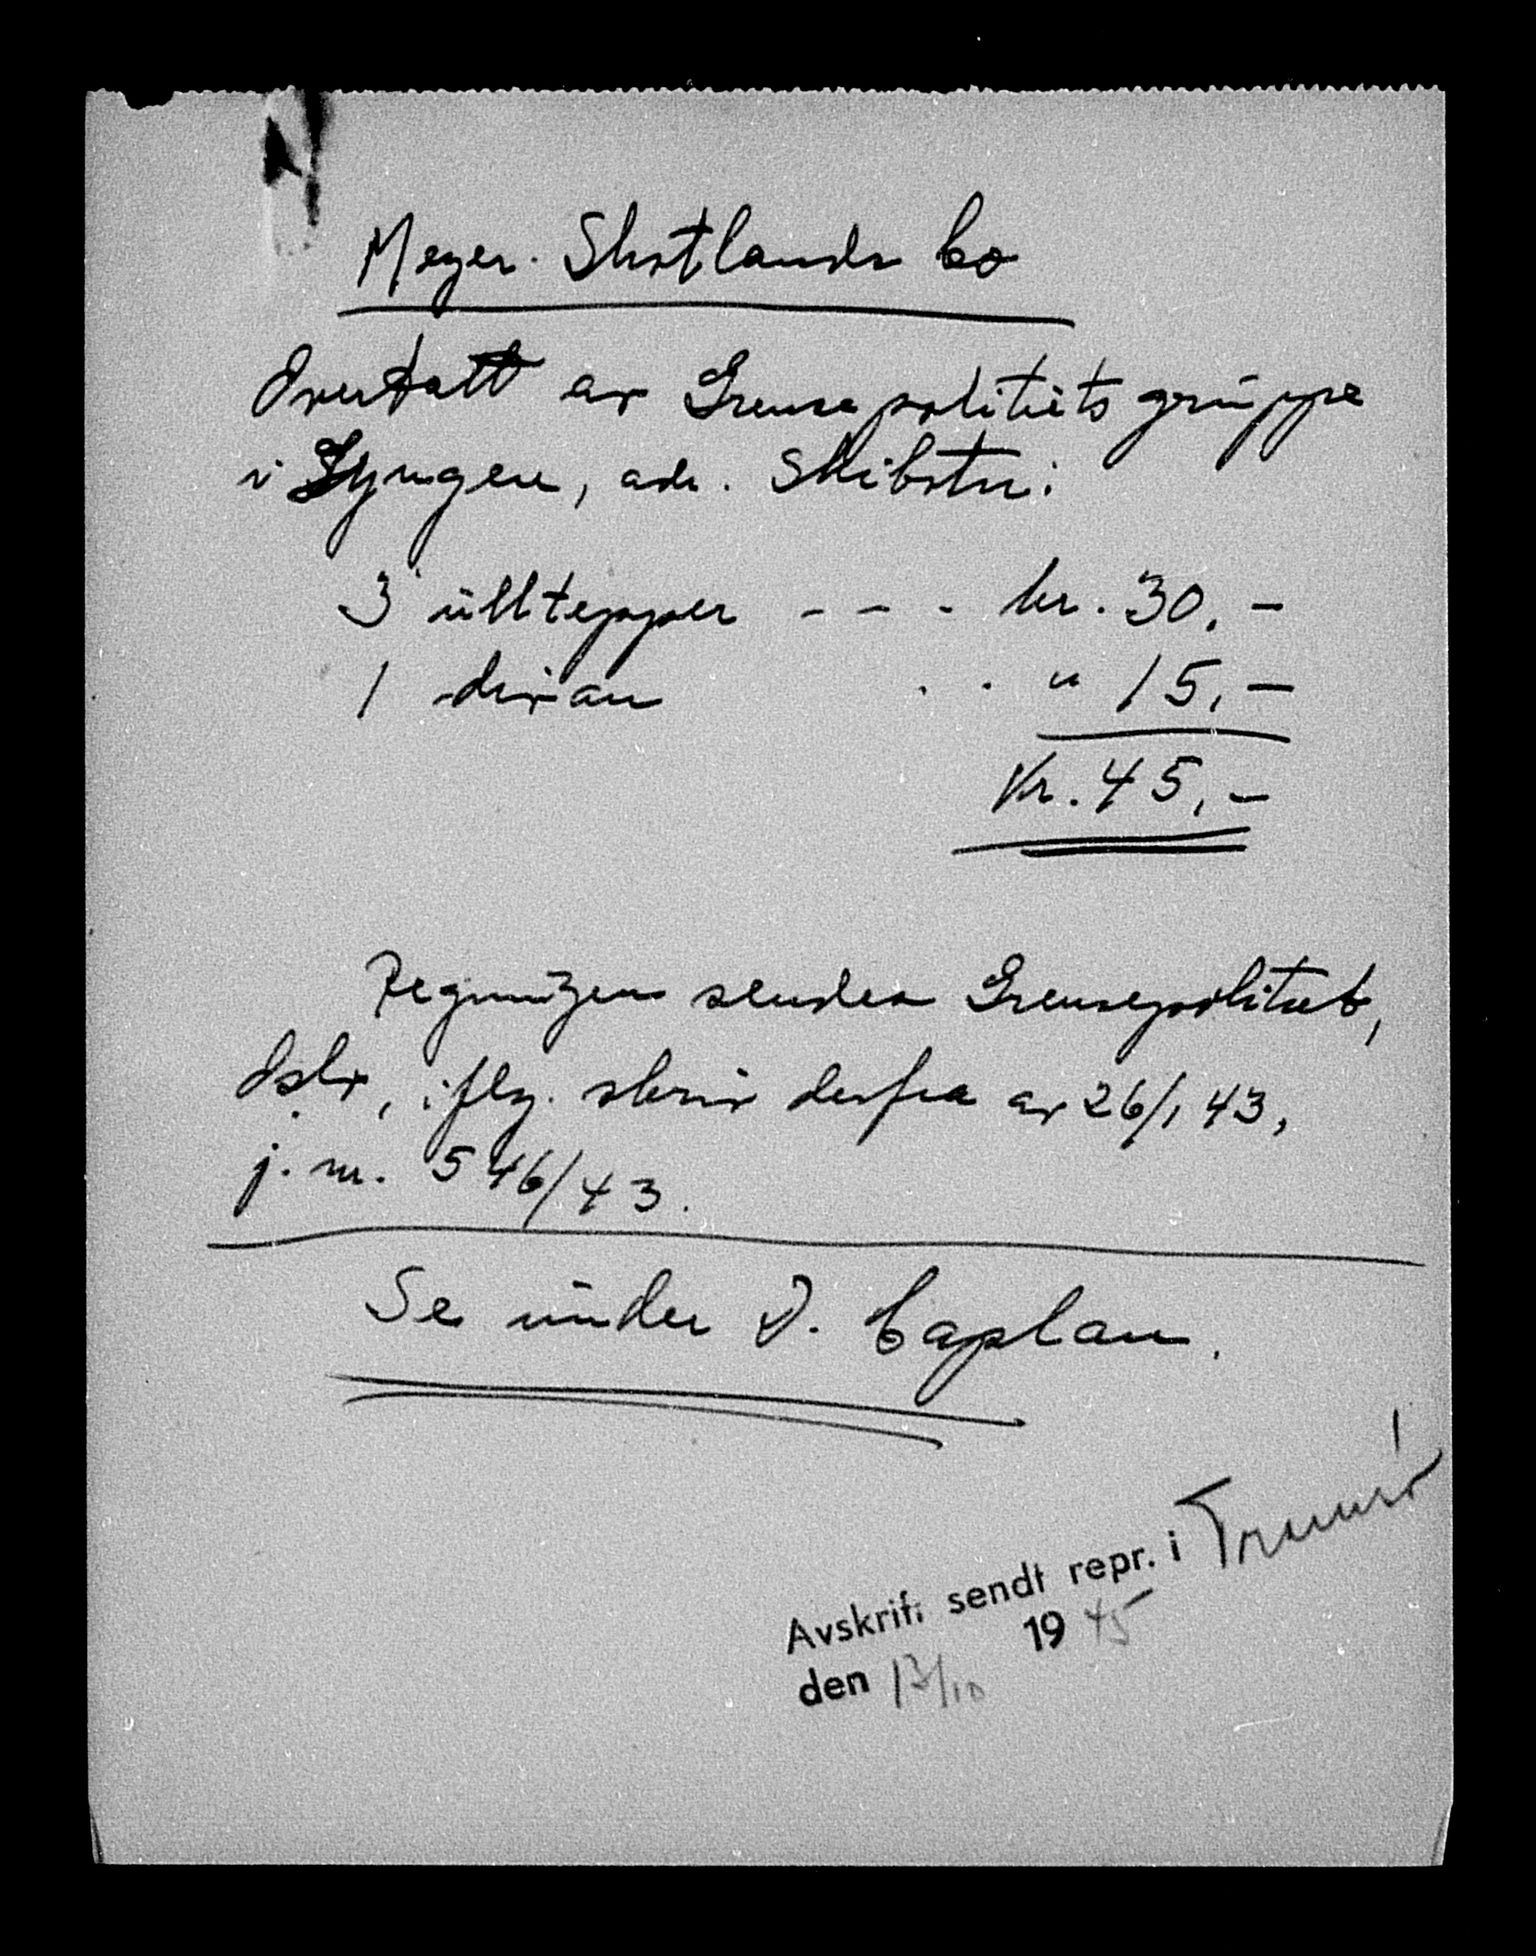 Meyer Shotlands bo
Overtatt av Grensepolitiets gruppe
i Lyngen, adr. Skibotn:
3 ulltepper - - - kr. 30,-
1 divan . . " 15,-
Kr. 45,-
Regningen sendes Grensepolitiet,
Oslo, iflg. skriv derfra av 26/1 43,
j. nr. 546/43.
Se under D. Caplan.
Avskrift sendt repr. i Tromsø
den 13/10 1945